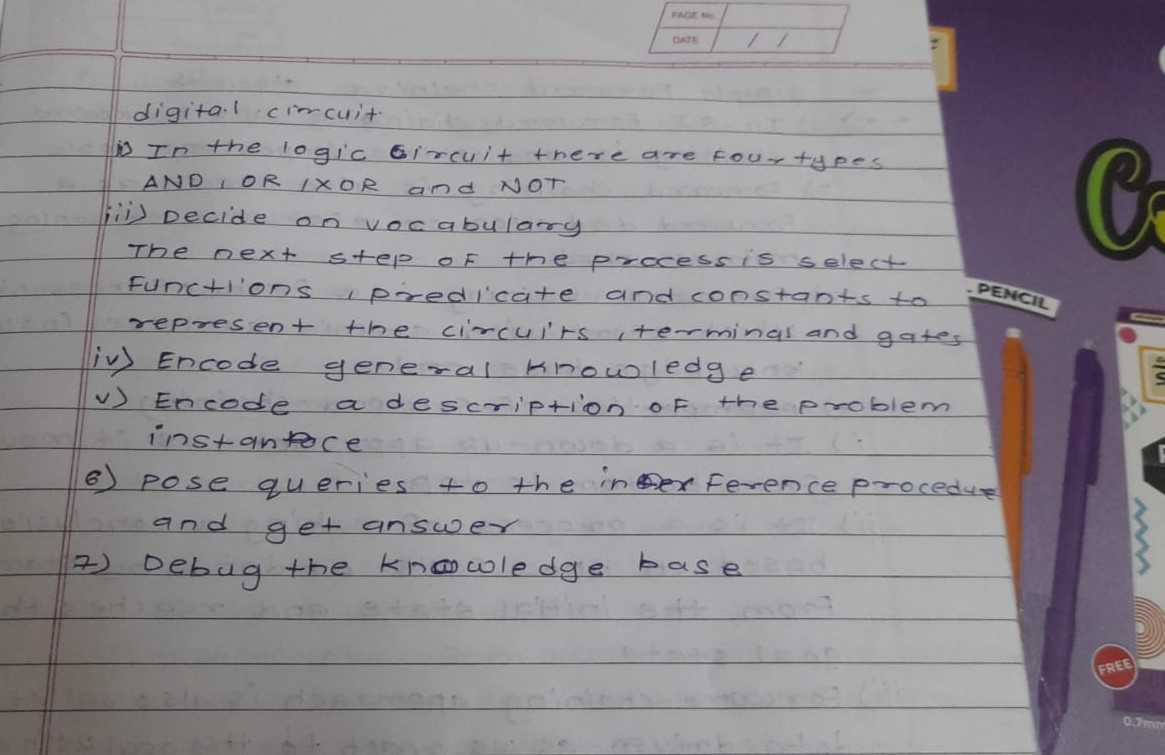 PAGE No.
DATE / /
digital circuit
i) In the logic circuit there are four types
AND, OR, XOR and NOT
iii) Decide on vocabulary
The next step of the process is select
functions, predicate and constants to
represent the circuits, terminal and gates
iv) Encode general knowledge
v) Encode a description of the problem
instance
6) pose queries to the inference procedure
and get answer
7) Debug the knowledge base
PENCIL
FREE
0.7mm